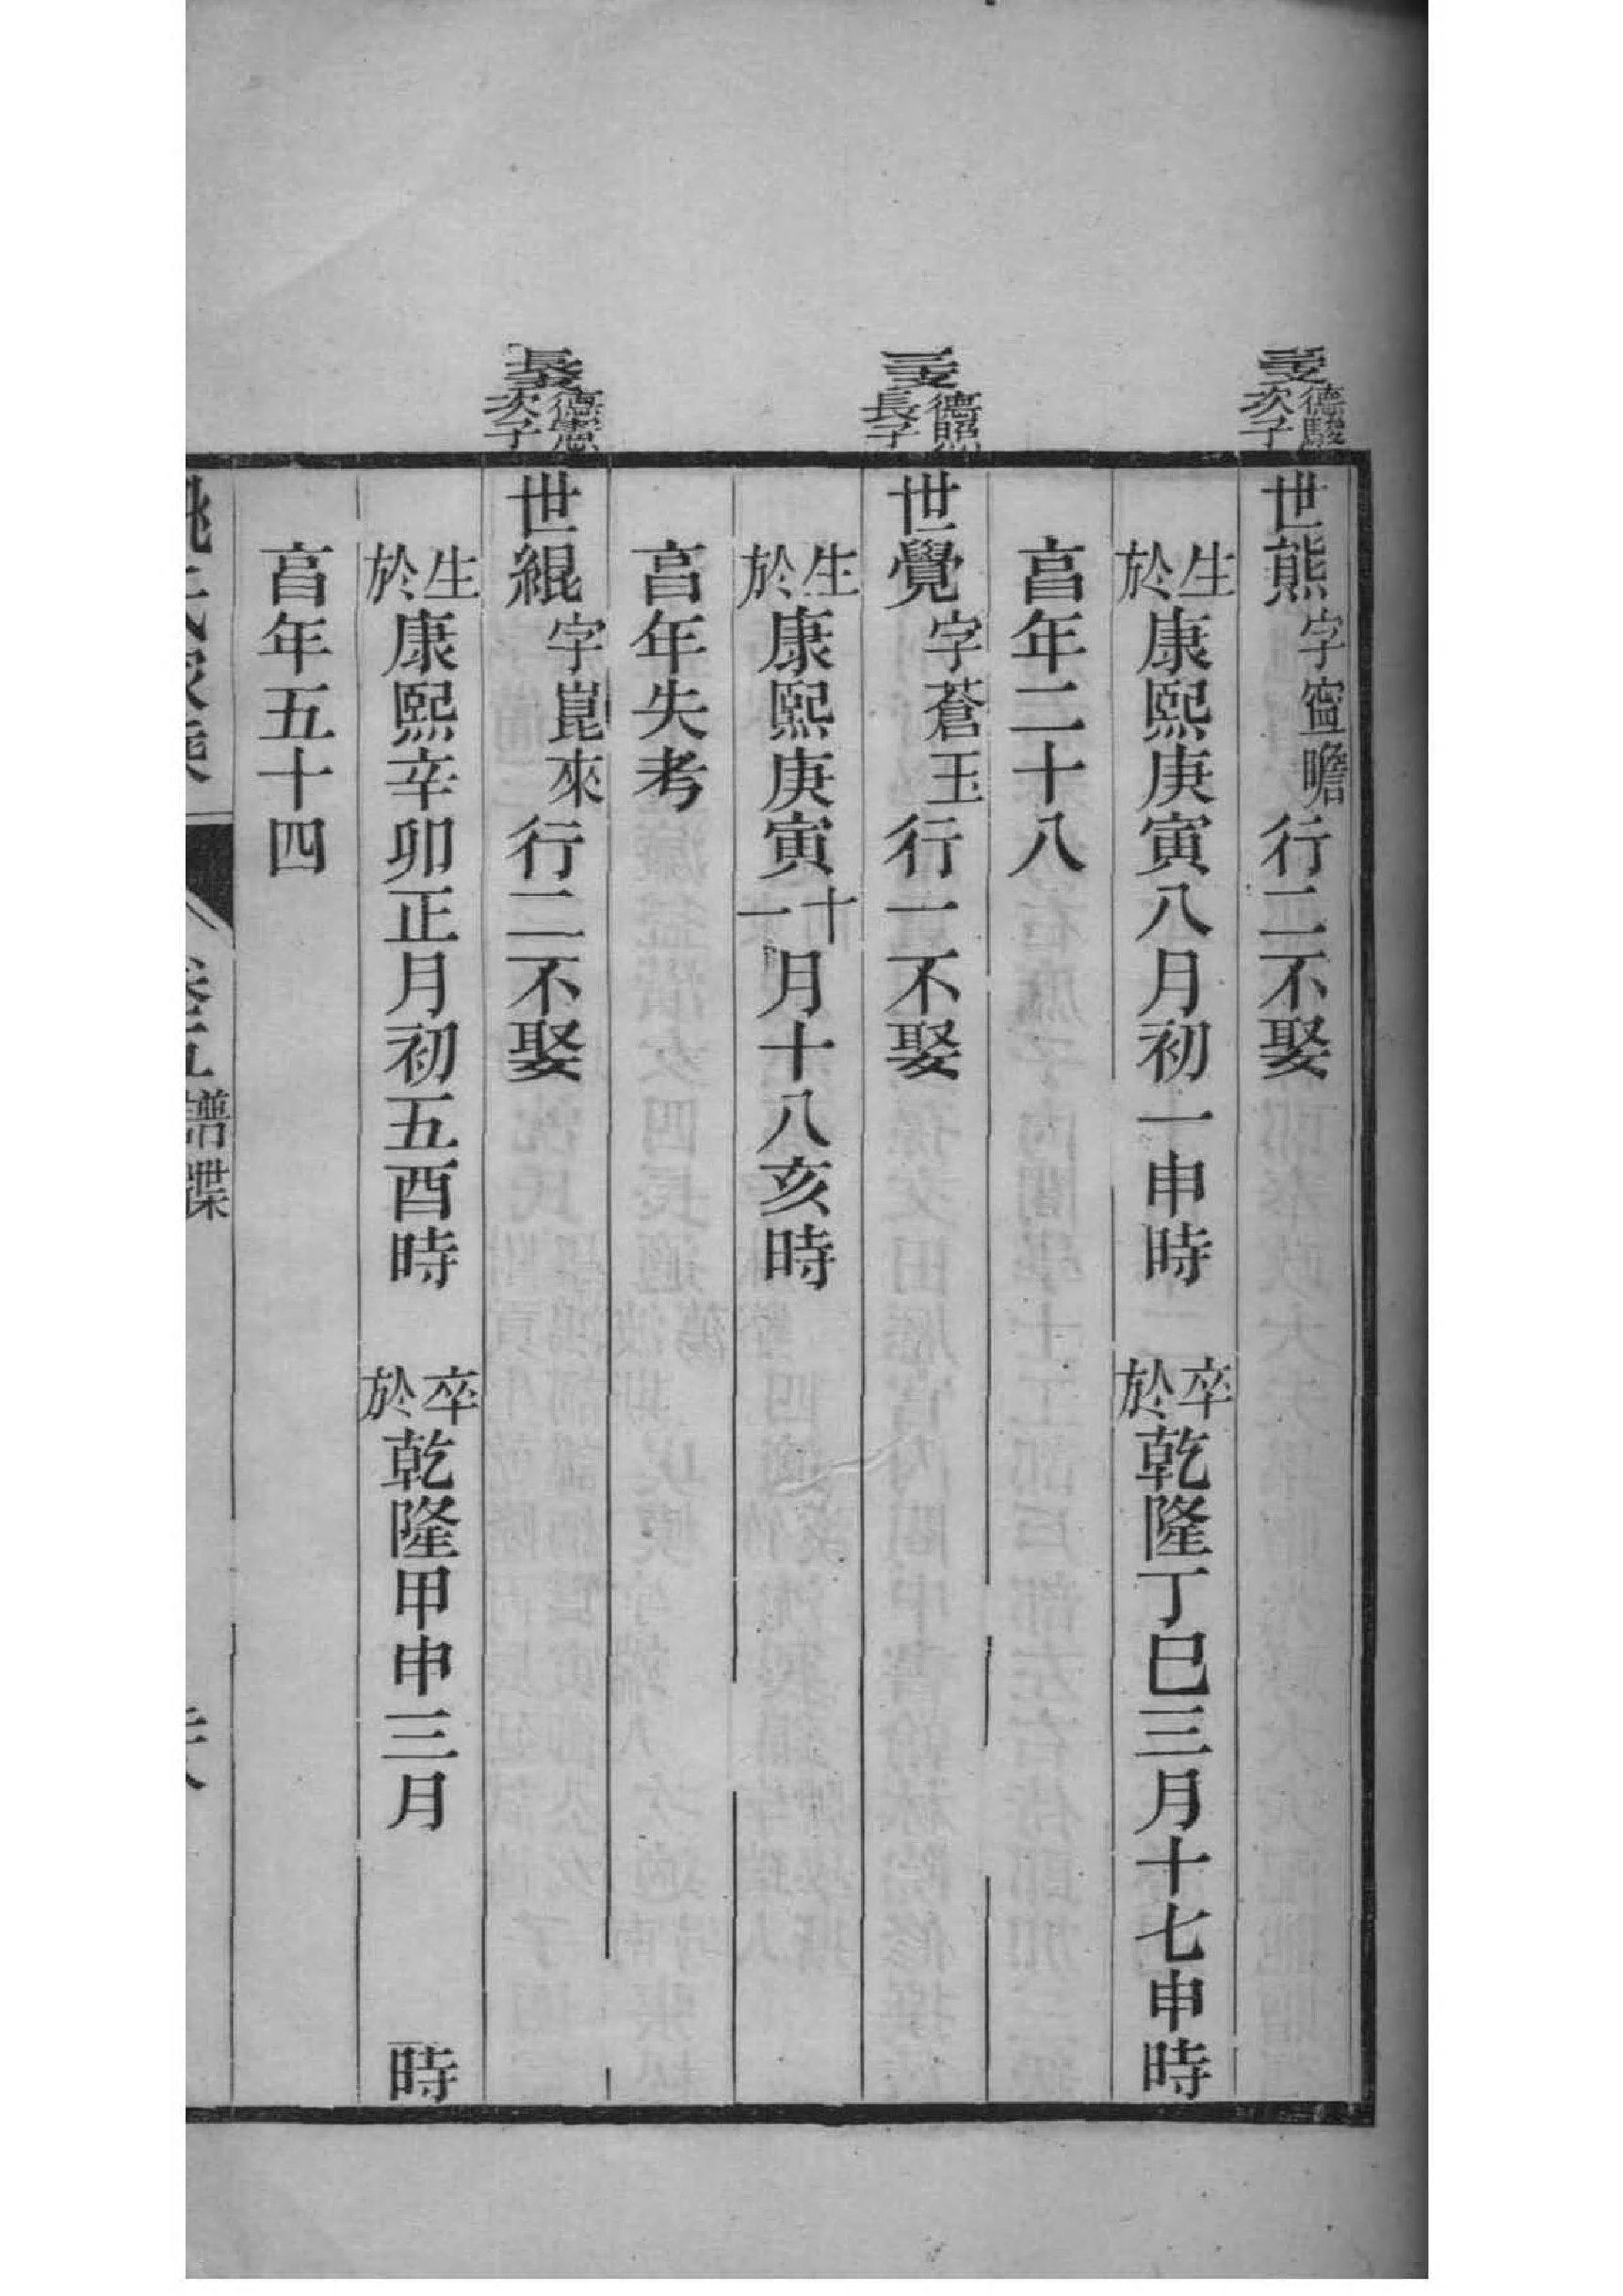 三支德駿次子
世熊字寍瞻行二不娶
生於康熙庚寅八月初一申時 卒於乾隆丁巳三月十七申時
亯年二十八
三支德照長子
世覺字蒼玉行一不娶
生於康熙庚寅十一月十八亥時
亯年失考
長支德憲次子
世緄字崑來行二不娶
生於康熙辛卯正月初五酉時 卒於乾隆甲申三月 時
亯年五十四
姚氏家乘 卷五 譜牒